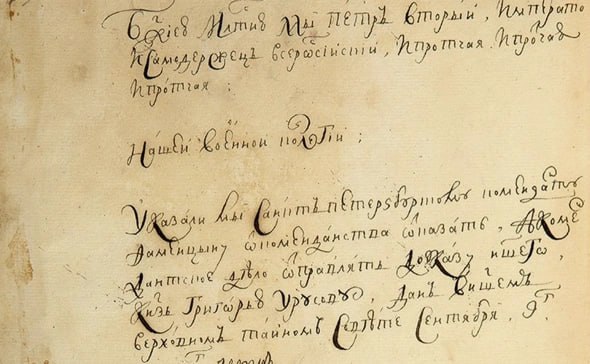 Бжїею Млтїю Мы Петръ вторый, Императо
и самодержецъ всеросїискїй, и протчая и протчая
и протчая :
Нашей военной колегїи ;
Указали мы Санктъ питерзбургскому коменданту
от комендантства отказать, а коме
дантское дѣло отправлять до указу ншего,
Князь Григорью Урусову, данъ в ншемъ
верховномъ таиномъ Совѣте Сентября, 9г